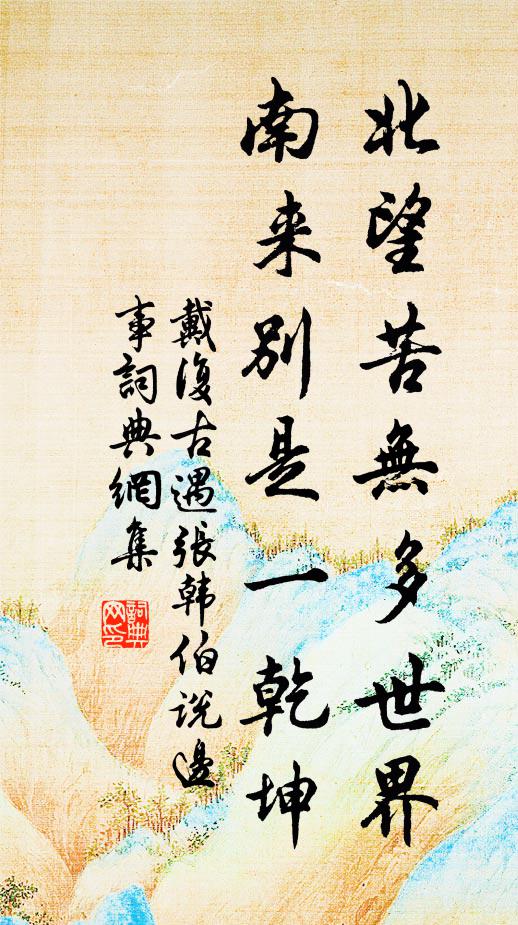 北望苦無多世界
南来別是一乾坤
戴復古遇張韩伯説邊
事詞典網集
詞典网印